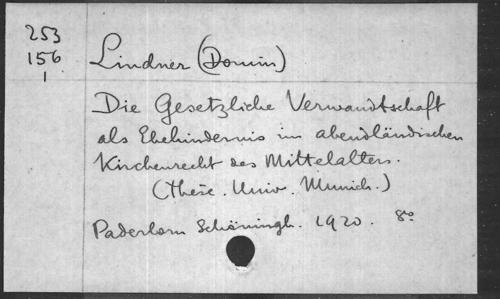 253
156
1
Lindner (Domin)
Die Gesetzliche Verwandtschaft
als Ehehindernis im abendländischen
Kirchenrecht des Mittelalters.
(Thèse. Univ. Munich.)
Paderborn Schöningh. 1920. 8°